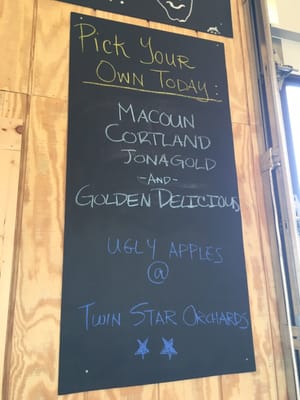 Pick Your
Own Today:
Macoun
Cortland
Jonagold
-And-
Golden Delicious
Ugly Apples
@
Twin Star Orchards